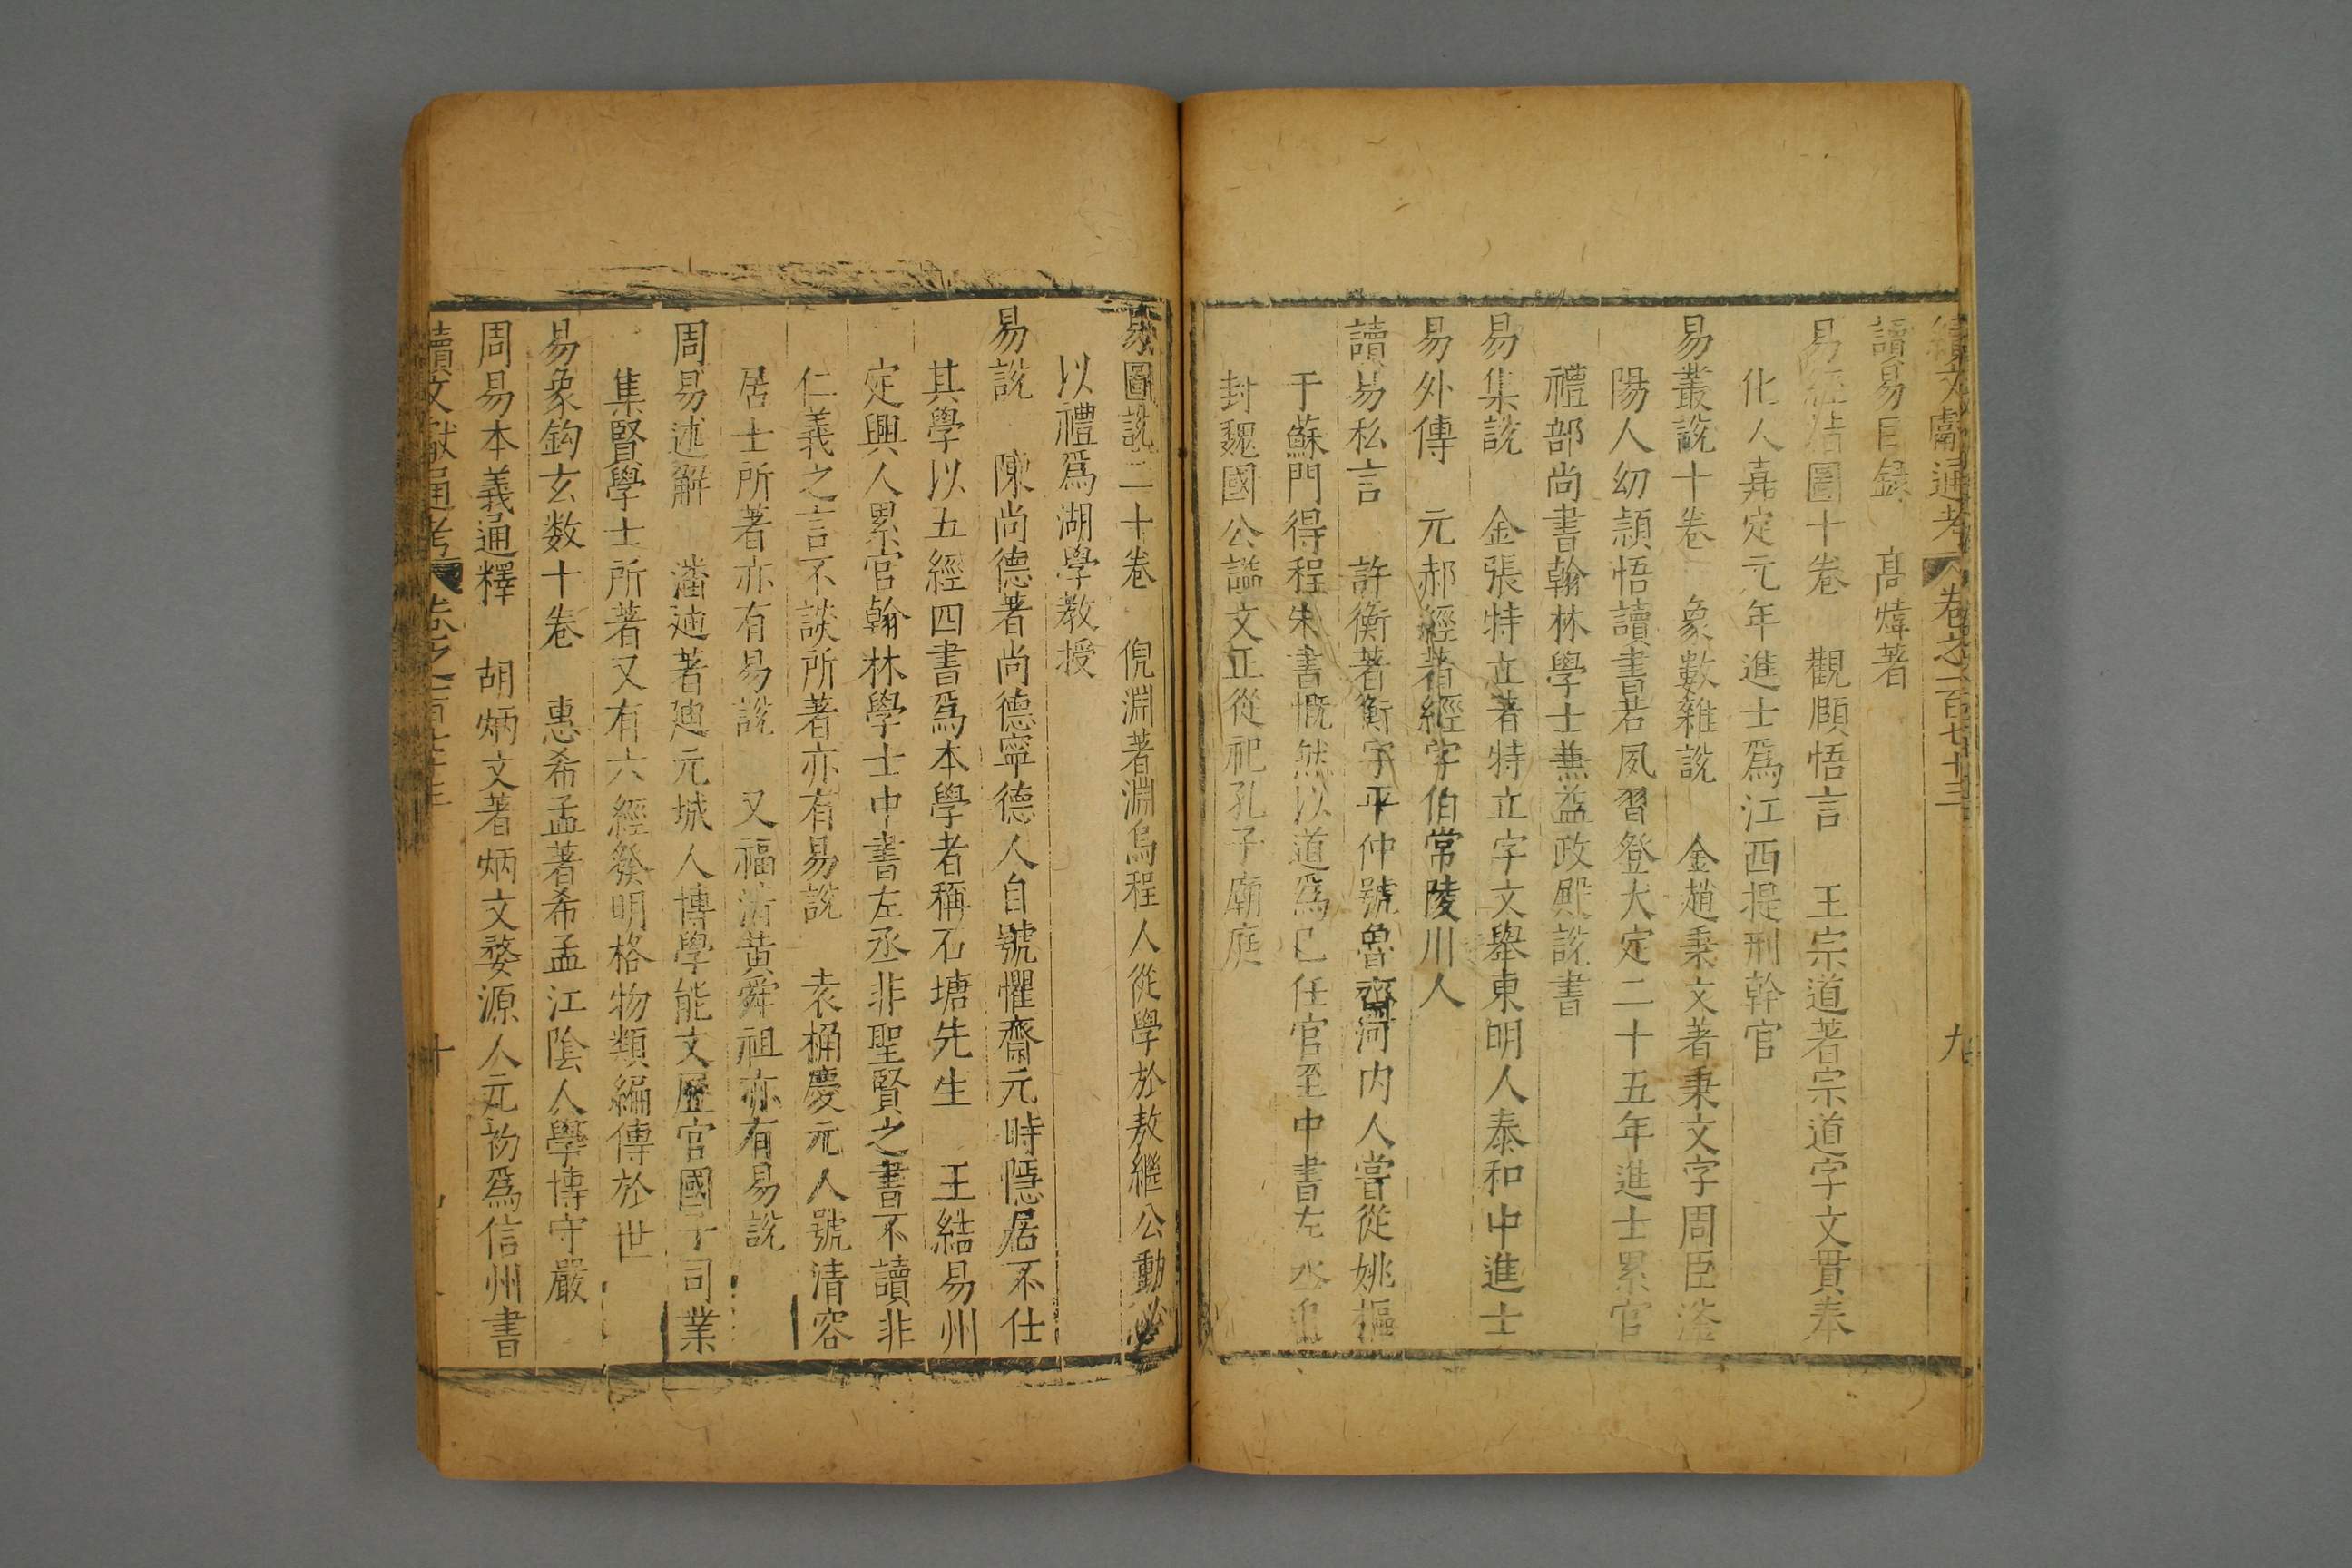 續文獻通考 卷之一百七十三 九
讀易目錄 髙煒著
易經指圖十卷 觀頤悟言 王宗道著宗道字文貫奉
化人嘉定元年進士爲江西提刑幹官
易叢說十卷 象數雜說 金趙秉文著秉文字周臣滏
陽人幼頴悟讀書若夙習登大定二十五年進士累官
禮部尚書翰林學士兼益政殿說書
易集說 金張特立著特立字文舉東明人泰和中進士
易外傳 元郝經著經字伯常陵川人
讀易私言 許衡著衡字平仲號魯齋河内人嘗從姚樞
于蘇門得程朱書慨然以道爲己任官至中書左丞追
封魏國公謚文正從祀孔子廟庭
易圖說二十卷 倪淵著淵烏程人從學於敖繼公動必
以禮爲湖學教授
易說 陳尚德著尚德寧德人自號懼齋元時隱居不仕
其學以五經四書爲本學者稱石塘先生 王結易州
定興人累官翰林學士中書左丞非聖賢之書不讀非
仁義之言不談所著亦有易說 袁桷慶元人號清容
居士所著亦有易說 又福清黄舜祖亦有易說
周易述解 潘迪著廸元城人博學能文歷官國子司業
集賢學士所著又有六經發明格物類編傳於世
易象鈎玄数十卷 惠希孟著希孟江陰人學博守嚴
周易本義通釋 胡炳文著炳文婺源人元初爲信州書
續文獻通考 卷之一百七十三 十